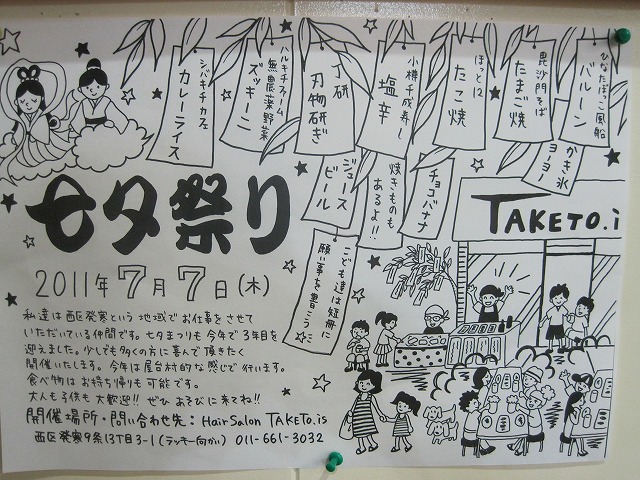 ひなたぼっこ風船
バルーン
かき氷
ヨーヨー
毘沙門そば
たまご焼
ほっと12
たこ焼
チョコバナナ
小樽千成寿し
塩辛
焼きものも
あるよ!!
丁研
刃物研ぎ
ジュース
ビール
こども達は短冊に
願い事を書こう
ハルキチファーム
無農薬野菜
ズッキーニ
シバキチカフェ
カレーライス
七夕祭り
2011年7月7日(木)
私達は西区発寒という地域でお仕事をさせて
いただいている仲間です。七夕まつりも今年で3年目を
迎えました。少しでも多くの方に喜んで頂きたく
開催いたします。今年は屋台村的な感じで行います。
食べ物はお持ち帰りも可能です。
大人も子供も大歓迎!! ぜひあそびに来てね!!
開催場所・問い合わせ先:Hair Salon TAKETO.is
西区発寒9条13丁目3-1(ラッキー向かい) 011-661-3032
TAKETO.i